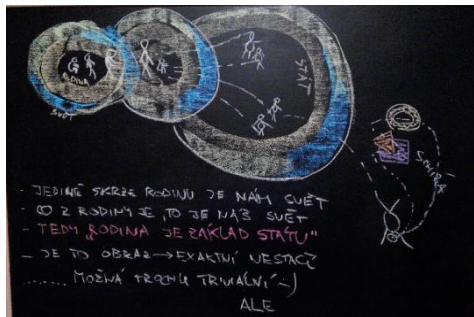 RODINA
SVĚT
STÁT
SMÍRÁ
- JEDINĚ SKRZE RODINU JE NÁM SVĚT
- CO Z RODINY JE, TO JE NÁŠ SVĚT
- TEDY „RODINA JE ZÁKLAD STÁTU“
- JE TO OBRAZ → EXAKTNÍ NESTAČÍ
....... MOŽNÁ TROCHU TRIVIÁLNÍ :-)
ALE